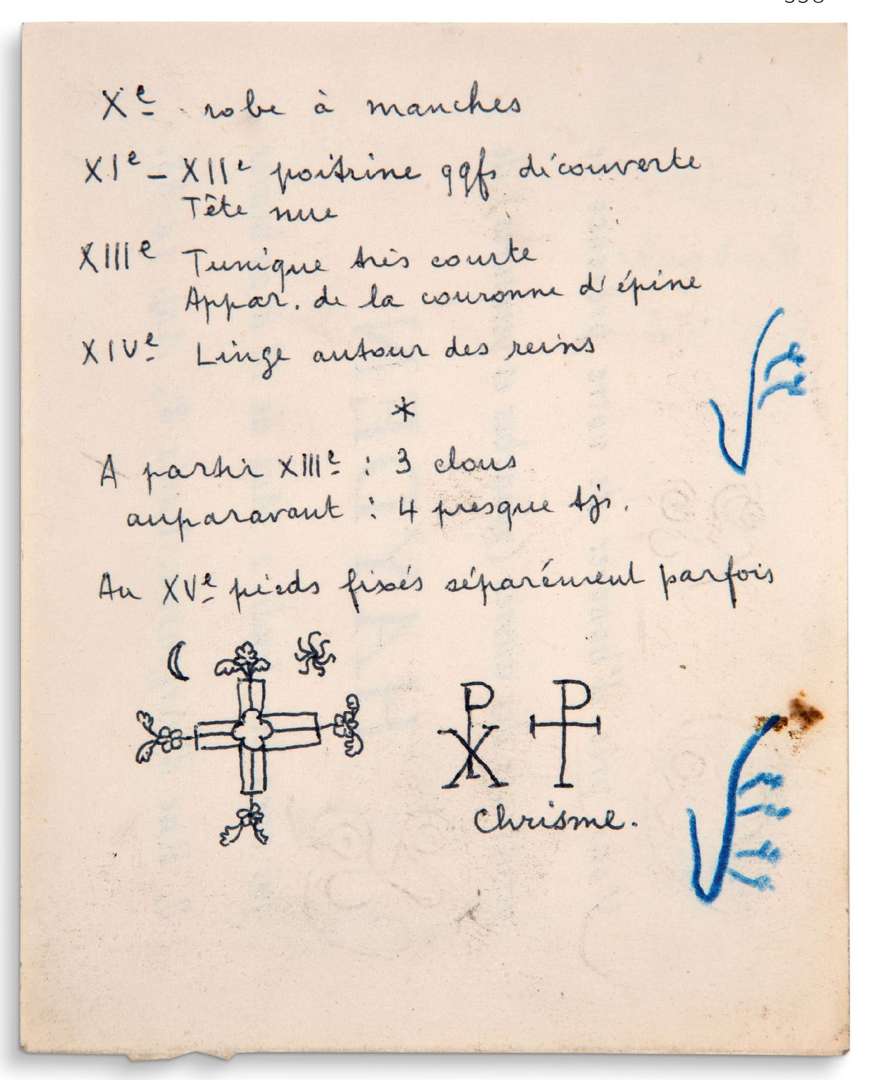 Xe robe à manches
XIe - XIIe poitrine qqfs découverte
Tête nue
XIIIe Tunique très courte
Appar. de la couronne d'épine
XIVe Linge autour des reins
*
A partir XIIIe : 3 clous
auparavant : 4 presque tjs.
Au XVe pieds fixés séparément parfois
Chrisme.